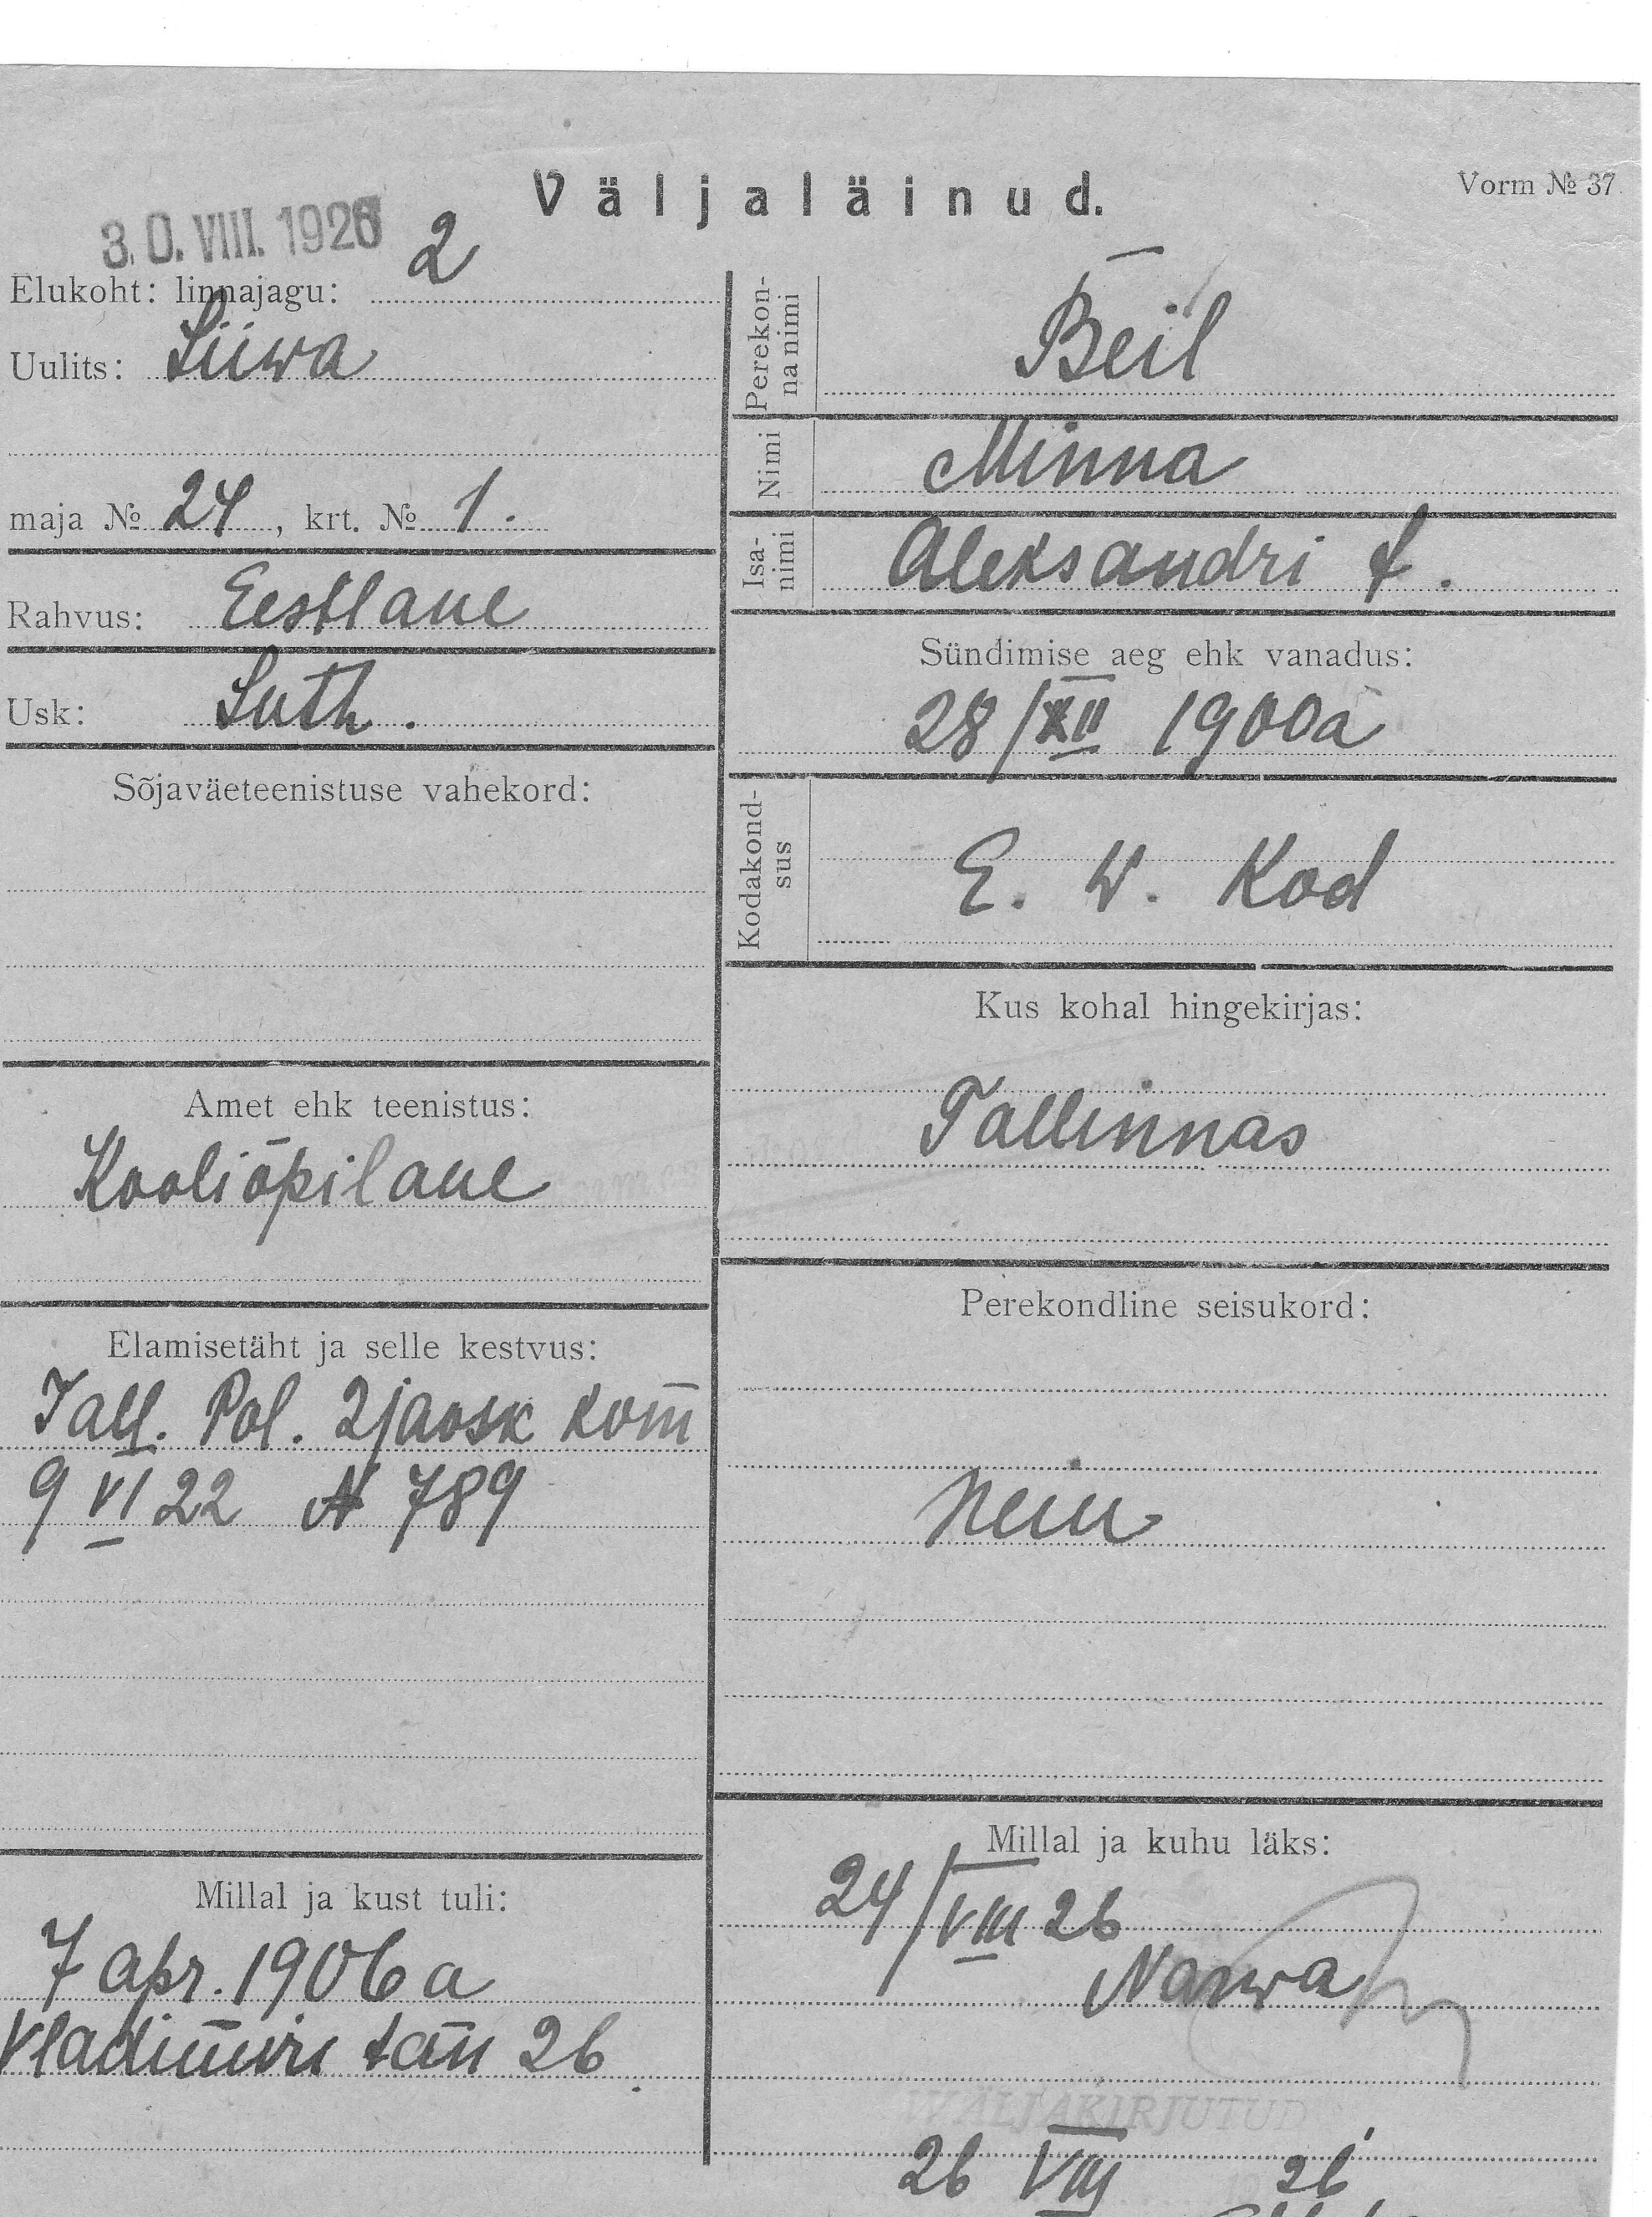 Väljaläinud.
Vorm № 37.
3.0.VIII.1926
Elukoht: linnajagu: 2
Uulits: Liiwa
maja № 24, krt. № 1.
Rahvus: Eestlane
Usk: Luth.
Sõjaväeteenistuse vahekord:
Amet ehk teenistus:
Kooliõpilane
Elamisetäht ja selle kestvus:
Tall. Pol. 2 jaosk kom̄
9 VI 22 N 789
Millal ja kust tuli:
7 apr. 1906 a
Vladimiri tän 26
Perekon-
na nimi
Beil
Nimi
Minna
Isa-
nimi
Aleksandri t.
Sündimise aeg ehk vanadus:
28/XII 1900a
Kodakond-
sus
E. W. Kod
Kus kohal hingekirjas:
Tallinnas
Perekondline seisukord:
Neiu
Millal ja kuhu läks:
24/VIII 26
Narwa
WÄLJAKIRJUTUD
26 VIII 26